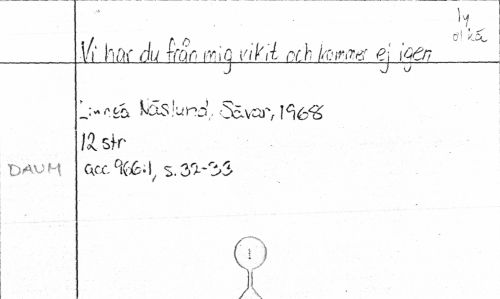 ly
ol kä
Vi har du från mig vikit och kommer ej igen
Linnéa Näslund, Sävar, 1968
12 str
DAUM acc 966:1, s. 32-33
1